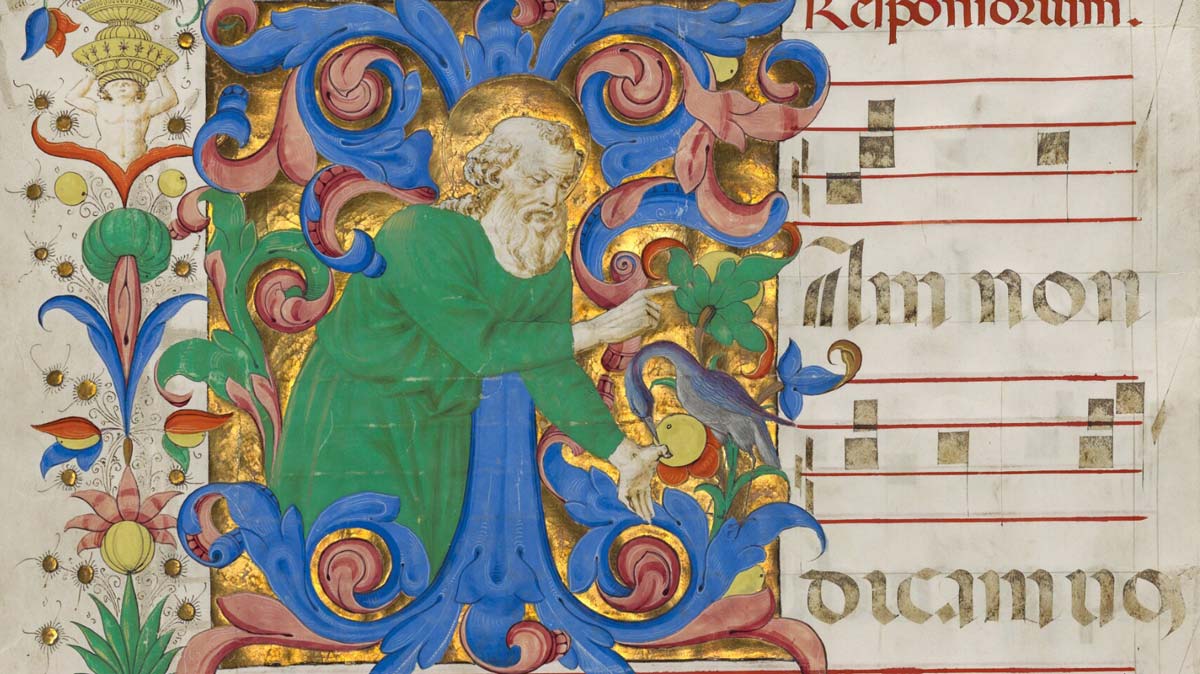 Responsorium.
Am non
dicam uos